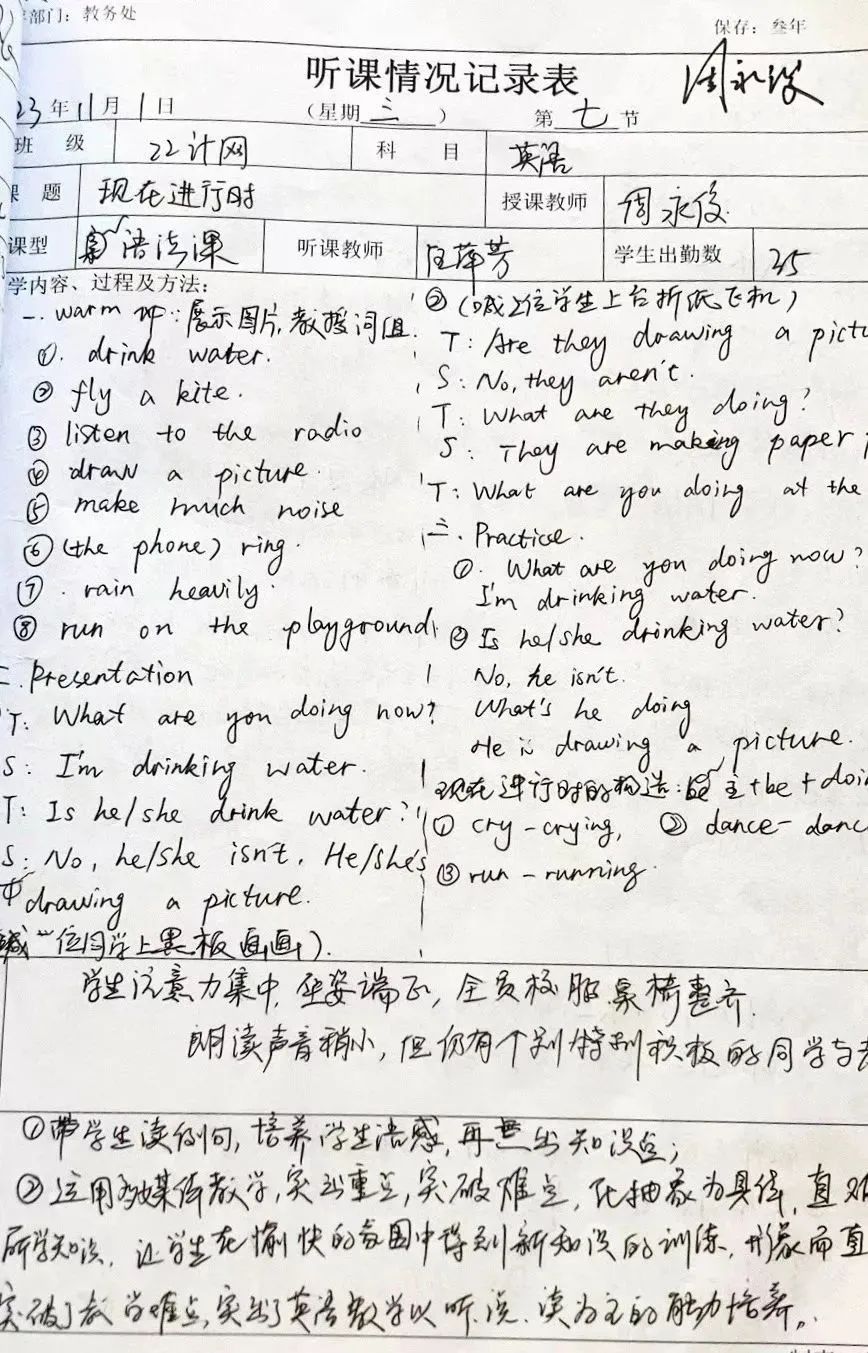 部门：教务处
保存：叁年
听课情况记录表
周永俊
23年11月1日 （星期三） 第七节
班级 22计网 科目 英语
课题 现在进行时 授课教师 周永俊
课型 语法课 听课教师 汪萍芳 学生出勤数 35
学内容、过程及方法：
一. warm up：展示图片，教授词组
①. drink water.
② fly a kite.
③ listen to the radio
④ draw a picture.
⑤ make much noise
⑥ (the phone) ring.
⑦. rain heavily.
⑧ run on the playground
二. Presentation
T: What are you doing now?
S: I'm drinking water.
T: Is he/she drink water?
S: No, he/she isn't. He/she's
drawing a picture.
喊一位同学上黑板画画）.
②（喊2位学生上台折纸飞机）
T: Are they drawing a pictu
S: No, they aren't.
T: What are they doing?
S: They are making paper
T: What are you doing at the
三. Practice.
①. What are you doing now?
I'm drinking water.
② Is he/she drinking water?
No, he isn't.
What's he doing
He is drawing a picture.
现在进行时的构造：主+be+doin
① cry-crying, ② dance-danc
③ run-running.
学生注意力集中，坐姿端正，全员校服，桌椅整齐.
朗读声音稍小，但仍有个别特别积极的同学与
①带学生读例句，培养学生语感，再 出知识点；
②运用多媒体教学，突出重点，突破难点，化抽象为具体，直观
所学知识，让学生在愉快的氛围中得到新知识的训练，形象而直
突破了教学难点，突出了英语教学以听、说、读为主的能力培养。